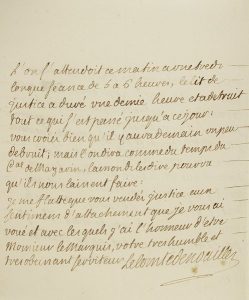 L'on s'attendoit ce matin a une tres
longue séance de 6 a 8 heures, le lit de
justice a duré une demie heure et a detruit
tout ce qui s'est passé jusqu'a ce jour;
vous croiés bien qu'il y aura demain un peu
de bruit; mais l'on dira comme du temps du
C.al de Mazarin, laissons les dire pourvu
qu'ils nous laissent faire:
je me flatte que vous rendés justice aux
sentimens d'attachement que je vous ai
voué et avec lesquels j'ai l'honneur d'être
Monsieur le Marquis, votre tres humble et
tres obeissant serviteur Le Comte de Noailles